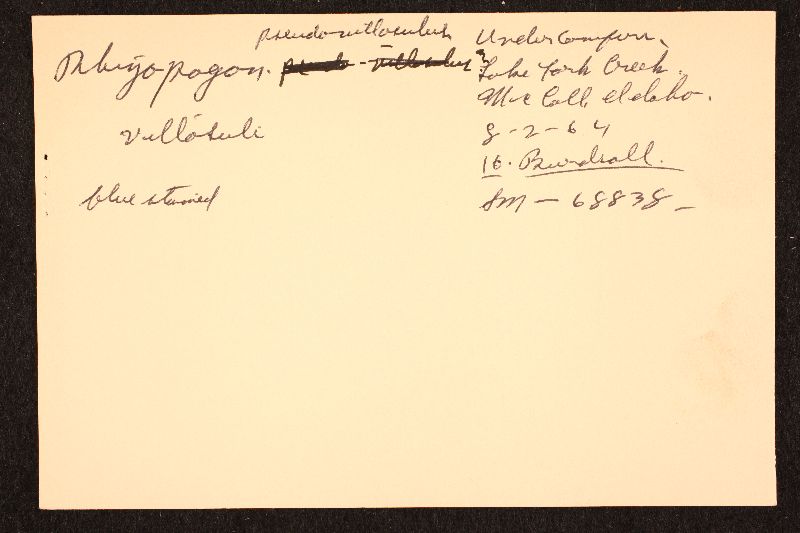 pseudo-villosulus
Rhizopogon. pseudo-villosulus
Villosuli
blue stained
Under conifers.
Lake Fork Creek.
McCall Idaho.
8-2-64
16. Burdsall.
SM — 68838 —